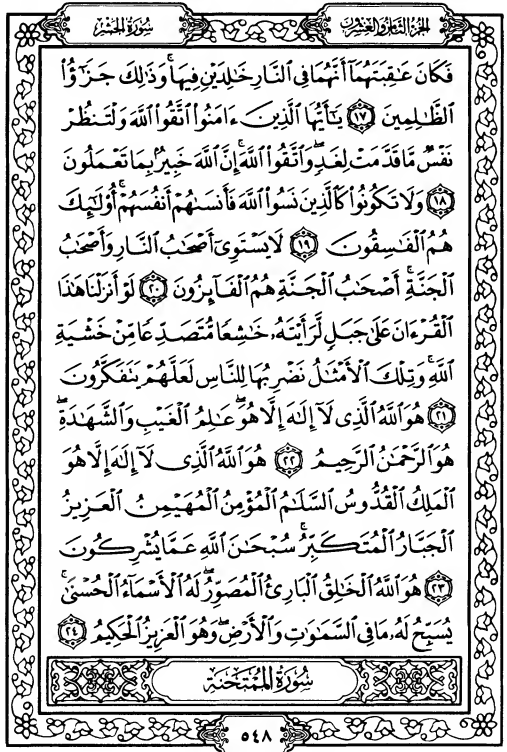 سُورَةُ الحَشْرِ
الجُزءُ الثَّامِنُ وَالعِشْرُونَ
فَكَانَ عَٰقِبَتَهُمَآ أَنَّهُمَا فِي ٱلنَّارِ خَٰلِدَيْنِ فِيهَاۚ وَذَٰلِكَ جَزَٰٓؤُا۟
ٱلظَّٰلِمِينَ ١٧ يَٰٓأَيُّهَا ٱلَّذِينَ ءَامَنُوا۟ ٱتَّقُوا۟ ٱللَّهَ وَلْتَنظُرْ
نَفْسٌ مَّا قَدَّمَتْ لِغَدٍۖ وَٱتَّقُوا۟ ٱللَّهَۚ إِنَّ ٱللَّهَ خَبِيرٌۢ بِمَا تَعْمَلُونَ
١٨ وَلَا تَكُونُوا۟ كَٱلَّذِينَ نَسُوا۟ ٱللَّهَ فَأَنسَىٰهُمْ أَنفُسَهُمْۚ أُو۟لَٰٓئِكَ
هُمُ ٱلْفَٰسِقُونَ ١٩ لَا يَسْتَوِىٓ أَصْحَٰبُ ٱلنَّارِ وَأَصْحَٰبُ
ٱلْجَنَّةِۚ أَصْحَٰبُ ٱلْجَنَّةِ هُمُ ٱلْفَآئِزُونَ ٢٠ لَوْ أَنزَلْنَا هَٰذَا
ٱلْقُرْءَانَ عَلَىٰ جَبَلٍ لَّرَأَيْتَهُۥ خَٰشِعًا مُّتَصَدِّعًا مِّنْ خَشْيَةِ
ٱللَّهِۚ وَتِلْكَ ٱلْأَمْثَٰلُ نَضْرِبُهَا لِلنَّاسِ لَعَلَّهُمْ يَتَفَكَّرُونَ
٢١ هُوَ ٱللَّهُ ٱلَّذِى لَآ إِلَٰهَ إِلَّا هُوَۖ عَٰلِمُ ٱلْغَيْبِ وَٱلشَّهَٰدَةِۖ
هُوَ ٱلرَّحْمَٰنُ ٱلرَّحِيمُ ٢٢ هُوَ ٱللَّهُ ٱلَّذِى لَآ إِلَٰهَ إِلَّا هُوَ
ٱلْمَلِكُ ٱلْقُدُّوسُ ٱلسَّلَٰمُ ٱلْمُؤْمِنُ ٱلْمُهَيْمِنُ ٱلْعَزِيزُ
ٱلْجَبَّارُ ٱلْمُتَكَبِّرُۚ سُبْحَٰنَ ٱللَّهِ عَمَّا يُشْرِكُونَ
٢٣ هُوَ ٱللَّهُ ٱلْخَٰلِقُ ٱلْبَارِئُ ٱلْمُصَوِّرُۖ لَهُ ٱلْأَسْمَآءُ ٱلْحُسْنَىٰۚ
يُسَبِّحُ لَهُۥ مَا فِى ٱلسَّمَٰوَٰتِ وَٱلْأَرْضِۖ وَهُوَ ٱلْعَزِيزُ ٱلْحَكِيمُ ٢٤
سُورَةُ المُمْتَحِنَة
٥٤٨